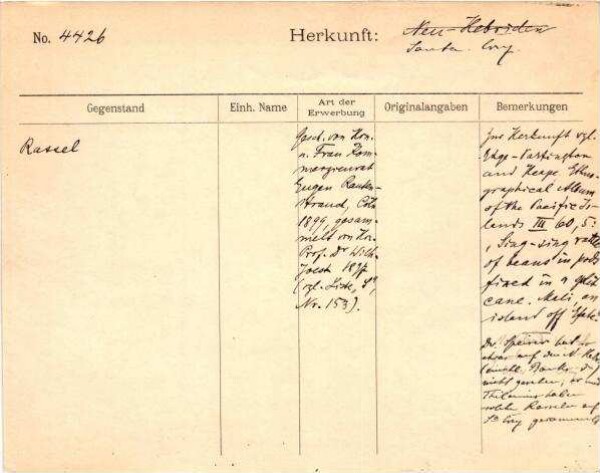 No. 4426
Herkunft: Neu-Hebriden
Santa Cruz.
Gegenstand
Einh. Name
Art der Erwerbung
Originalangaben
Bemerkungen
Rassel
Gesch. von Hrn.
u. Frau Kom-
merzienrat
Eugen Rauten-
strauch, Cöln
1899, gesam-
melt von Hrn.
Prof. Dr Wilh.
Joest 1897
(vgl. Liste,
No. 153).
Zur Herkunft vgl.
Edge-Partington
and Heape, Ethno-
graphical Album
of the Pacific Is-
lands III 60, 5:
"Sing-sing rattle
of beans in pods
fixed in a split
cane. Meli, an
island off Efate."
Dr. Speiser hat so
etwas auf den N. Heb.
nicht gesehen, er und
Thilenius haben
solche Rasseln auf
Sta Cruz gesammelt